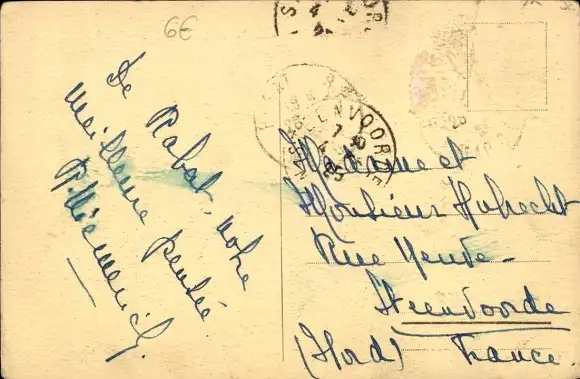 6€
De Rabat, notre
meilleure pensée.
STEENVOORDE
Madame et
Monsieur Hubrecht
Rue Neuve
Steenvoorde
(Nord) France.